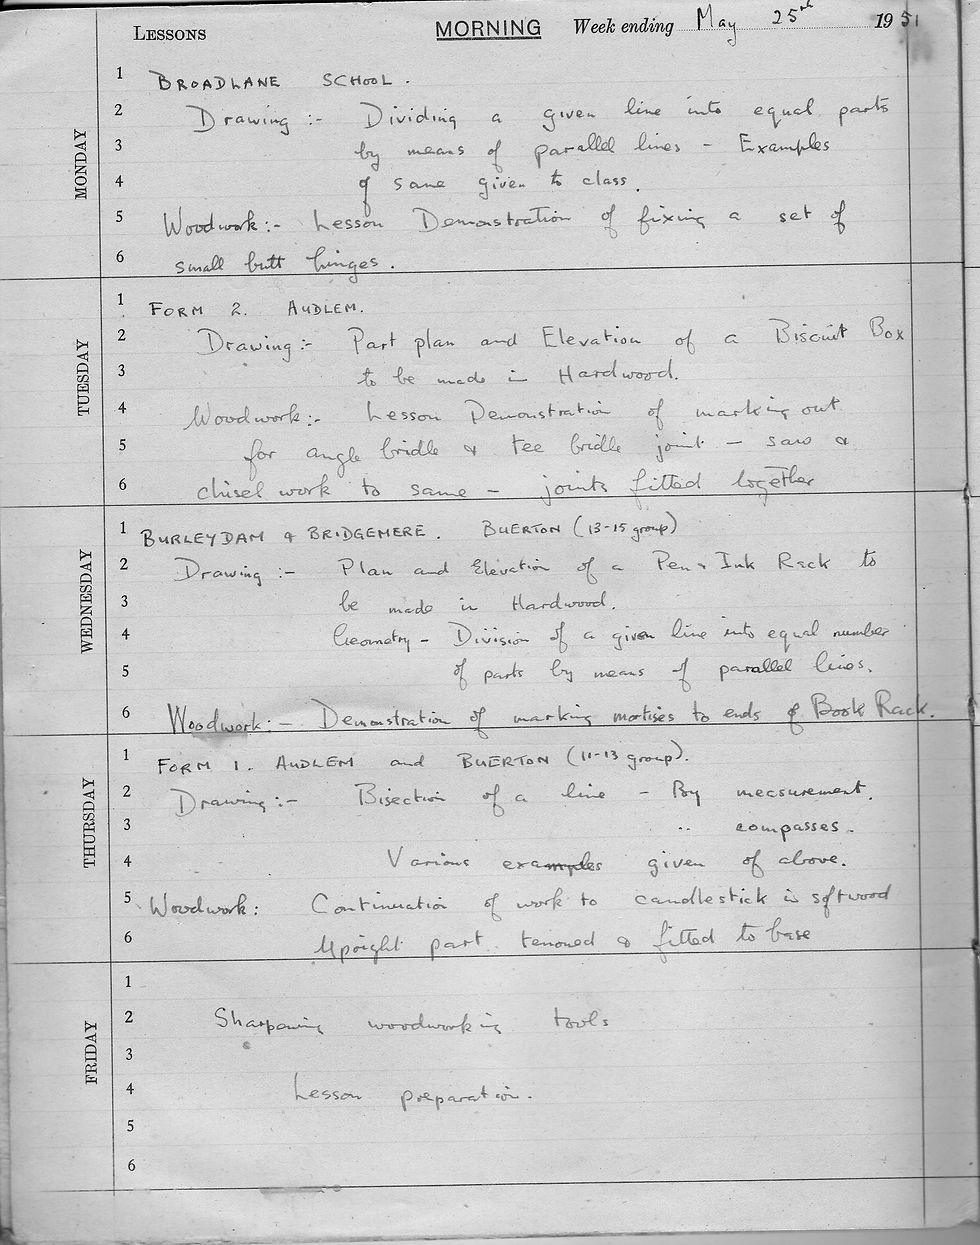 LESSONS MORNING Week ending May 25th 1951
MONDAY
1 BROADLANE SCHOOL.
2 Drawing :- Dividing a given line into equal parts
3 by means of parallel lines - Examples
4 of same given to class.
5 Woodwork:- Lesson Demonstration of fixing a set of
6 small butt hinges.
TUESDAY
1 FORM 2. AUDLEM.
2 Drawing:- Part plan and Elevation of a Biscuit Box
3 to be made in Hardwood.
4 Woodwork:- Lesson Demonstration of marking out
5 for angle bridle & tee bridle joint - saw &
6 chisel work to same - joints fitted together
WEDNESDAY
1 BURLEYDAM & BRIDGEMERE. BUERTON (13-15 group)
2 Drawing :- Plan and Elevation of a Pen & Ink Rack to
3 be made in Hardwood.
4 Geometry - Division of a given line into equal number
5 of parts by means of parallel lines.
6 Woodwork:- Demonstration of marking mortises to ends of Book Rack.
THURSDAY
1 FORM 1. AUDLEM and BUERTON (11-13 group).
2 Drawing:- Bisection of a line - By measurement.
3 " compasses.
4 Various examples given of above.
5 Woodwork: Continuation of work to candlestick in softwood
6 Upright part tenoned & fitted to base
FRIDAY
1
2 Sharpening woodworking tools
3
4 Lesson preparation.
5
6